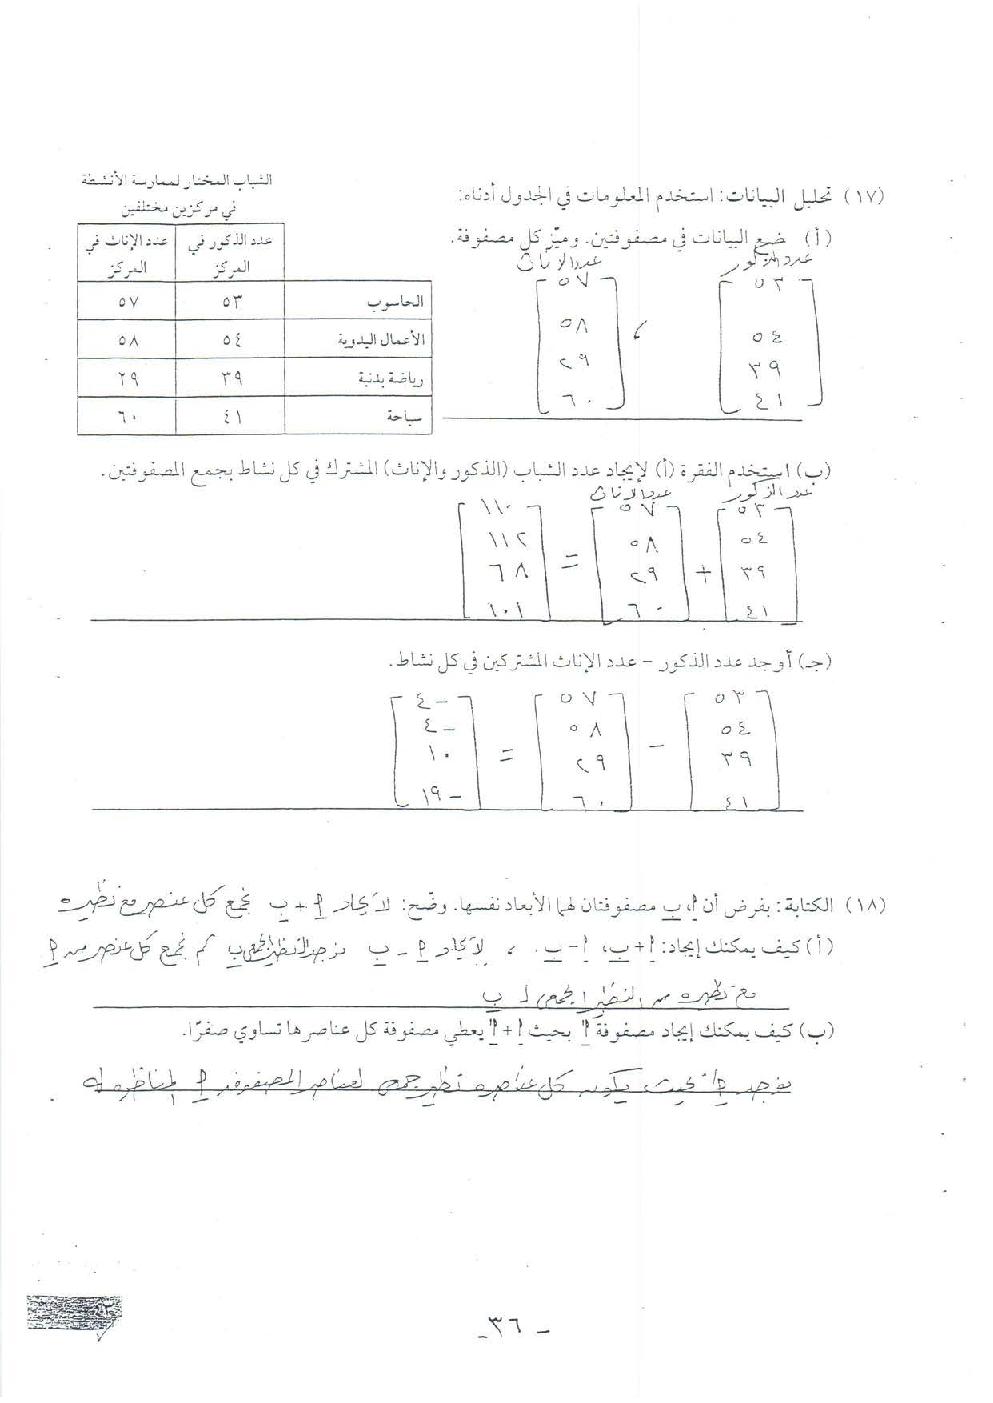 (١٧) تحليل البيانات: استخدم المعلومات في الجدول أدناه:
(أ) ضع البيانات في مصفوفتين. وميّز كل مصفوفة.
الشباب المختار لممارسة الأنشطة
في مركزين مختلفين
عدد الذكور في المركز عدد الإناث في المركز
الحاسوب ٥٣ ٥٧
الأعمال اليدوية ٥٤ ٥٨
رياضة بدنية ٣٩ ٢٩
سباحة ٤١ ٦٠
عدد الذكور عدد الإناث
٥٣ ٥٧
٥٤ ، ٥٨
٣٩ ٢٩
٤١ ٦٠
(ب) استخدم الفقرة (أ) لإيجاد عدد الشباب (الذكور والإناث) المشترك في كل نشاط بجمع المصفوفتين.
عدد الذكور عدد الإناث
٥٣ ٥٧ ١١٠
٥٤ ٥٨ ١١٢
٣٩ + ٢٩ = ٦٨
٤١ ٦٠ ١٠١
(جـ) أوجد عدد الذكور – عدد الإناث المشتركين في كل نشاط.
٥٣ ٥٧ –٤
٥٤ ٥٨ –٤
٣٩ – ٢٩ = ١٠
٤١ ٦٠ –١٩
(١٨) الكتابة: بفرض أن أ، ب مصفوفتان لهما الأبعاد نفسها. وضح: لايجاد أ + ب نجمع كل عنصر مع نظيره
(أ) كيف يمكنك إيجاد: أ + ب، أ – ب. ، لايجاد أ – ب نوجد النظير الجمعي ب ثم نجمع كل عنصر من أ
مع نظيره من النظير الجمعي لـ ب
(ب) كيف يمكنك إيجاد مصفوفة أَ بحيث أ + أَ يعطي مصفوفة كل عناصرها تساوي صفرًا.
نوجد أَ بحيث يكون كل عناصره نظير جمعي لعناصر المصفوفة أ المناظرة له
– ٣٦ –